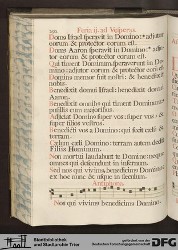 Feria ij. ad Vesperas.
Domus Israel speravit in Domino: * adiutor
eorum & protector eorum est.
Domus Aaron speravit in Domino: * adiu-
tor eorum & protector eorum est.
Qui timent Dominum, speraverunt in Do-
mino: adiutor eorum & protector eorum est.
Dominus memor fuit nostri: & benedixit
nobis.
Benedixit domui Israel: benedixit domui
Aaron.
Benedixit omnibus qui timent Dominum:
pusillis cum maioribus.
Adiiciat Dominus super vos: super vos &
super filios vestros.
Benedicti vos a Domino: qui fecit cælum &
terram.
Cælum cæli Domino: terram autem dedit
Filiis Hominum.
Non mortui laudabunt te Domine: neque
omnes qui descendunt in infernum.
Sed nos qui vivimus, benedicimus Domino:
ex hoc nunc & usque in sæculum.
Antiphona.
Nos qui vivimus benedicimus Domino
Stadtbibliothek
und Stadtarchiv Trier
gefördert von der
DFG